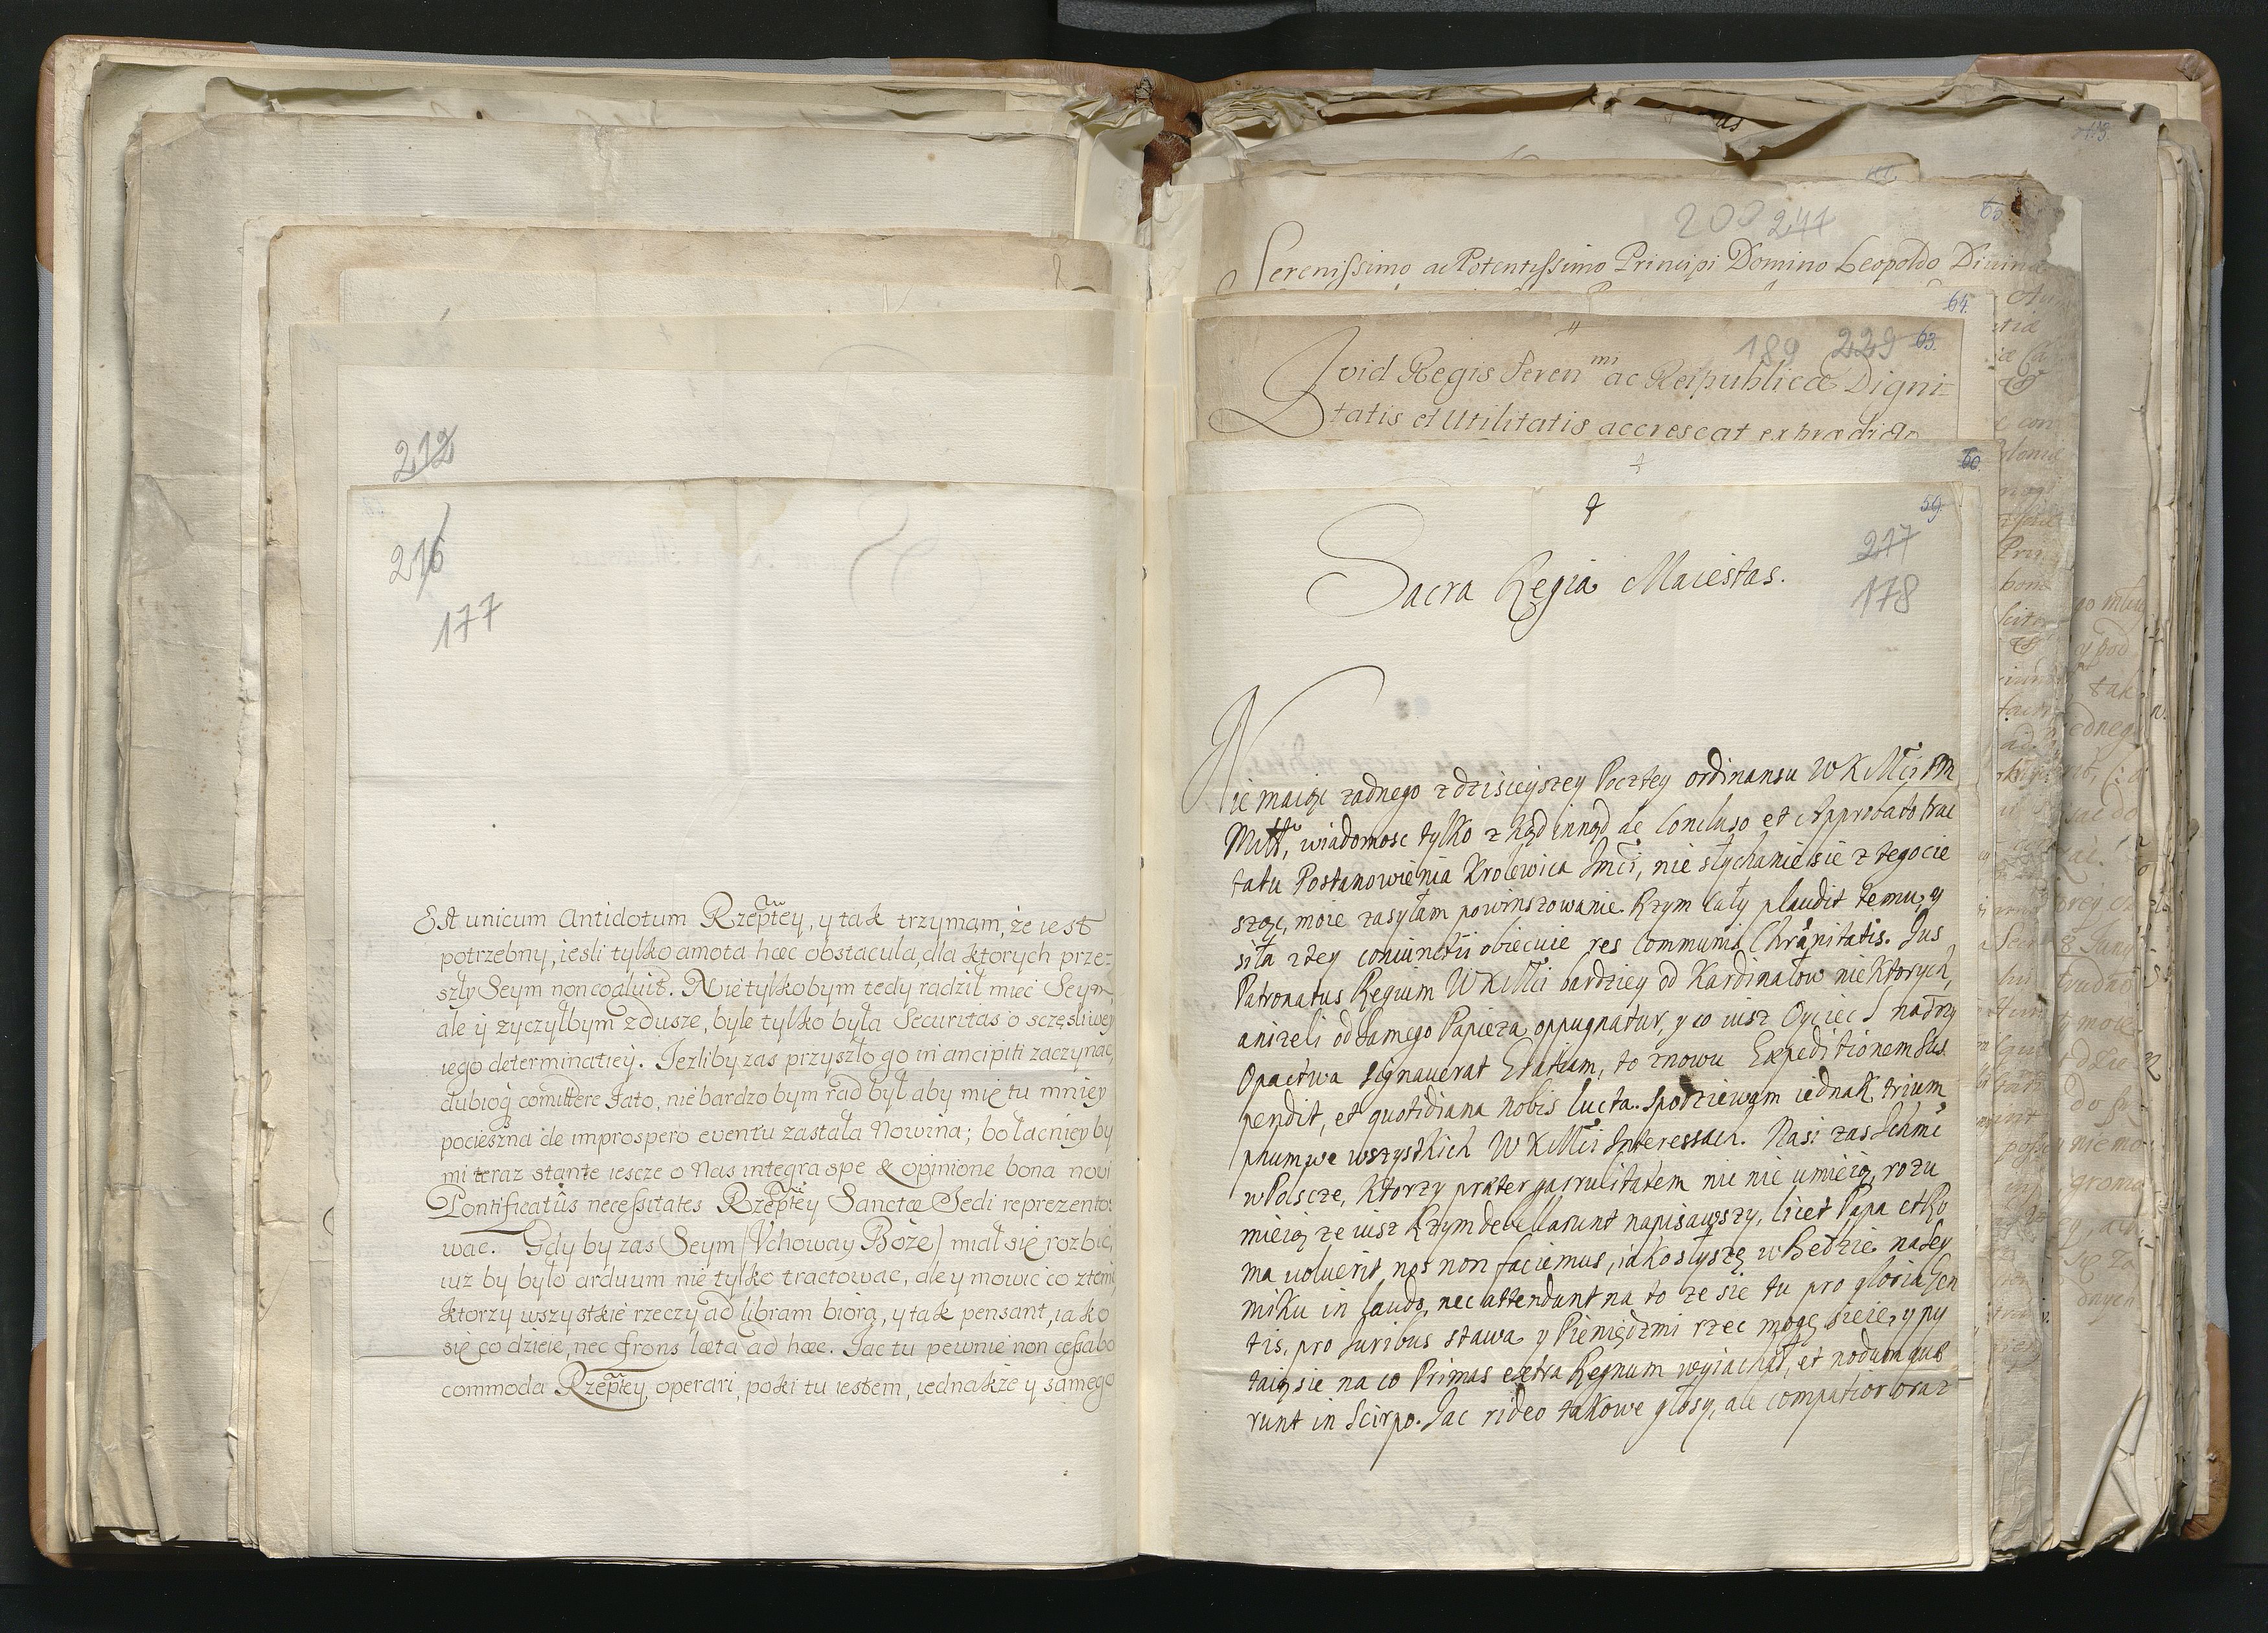 212
216
177
Est unicum Antidotum Rzeptey, y tak trzymam, że iest
potrzebny, iesli tylko amota hæc obstacula, dla ktorych prze-
szły Seym non coaluit. Nie tylko bym tedy radził miec Seym,
ale ÿ zyczyłbym z dusze, byle tylko była Securitas o sczęsliwey
iego determinatiey. Iezliby zas przyszło go in ancipiti zaczynac,
dubioq comittere fato, nie bardzo bym rad był aby mię tu mniey
pocieszna de improspero eventu zastała Nowina; bo łacniey by
mi teraz stante iescze o Nas integra spe & opinione bona novi
Pontificatûs necessitates Rzeptey Sanctæ Sedi reprezento:
wac. Gdy by zas Seym (Uchoway Boże) miał się rozbic,
iuz by było arduum nie tylko tractowac, ale y mowic co z temi,
ktorzy wszystkie rzeczy ad libram biorą, y tak pensant, iako
się co dzieie, nec frons læta ad hæc. Iac tu pewnie non cessabo
commoda Rzeptey operari, poki tu iestem, iednakże y samego
200 247
Serenissimo ac Potentissimo Principi Domino Leopoldo Divina
64.
189 229 63.
Quid Regis Seren mi ac Reipublicæ Digni-
tatis et Utilitatis accrescat ex prædicto
60.
59.
217
178
Sacra Regia Maiestas.
Nie maiąc zadnego z dzisieyszey Pocztey ordinansu W K Mci PM
Mtt, wiadomosc tylko z kąd innąd de Concluso et Approbato trac
tatu Postanowienia Krolewica Jmci, nie słychanie sie z tego cie
szęc, moie zasyłam powinszowanie. Rzym cały plaudit temu, y
siła z tey coniunctii obiecuie res Communis Chrãnitatis. Jus
Patronatus Regium W K Mci bardziey od Kardinałow niektorych,
anizeli od samego Papieza oppugnatur, y co iusz Oyciec S na trzy
Opactwa signaverat Gratiam, to znowu Expeditionem sus
pendit, et quotidiana nobis lucta. Spodziewam iednak trium
phum we wszystkich W K Mci Interessach. Nasi zas Ichmc
w Polscze, ktorzy præter garrulitatem nic nie umieią, rozu
mieią ze iusz Rzym debellarunt napisawszy, licet Papa et Ro
ma voluerit nos non faciemus, iako słyszę w Bełzie na Sey
miku in laudo, nec attendunt na to ze sie tu pro gloria Gen
tis, pro Juribus stawa y Pieniędzmi rzec mogę sieie, y py
taią sie na co Primas extra Regnum wyiachał, et nodum quæ
runt in Scirpo. Iac rideo takowe głosy, ale compatior oraz